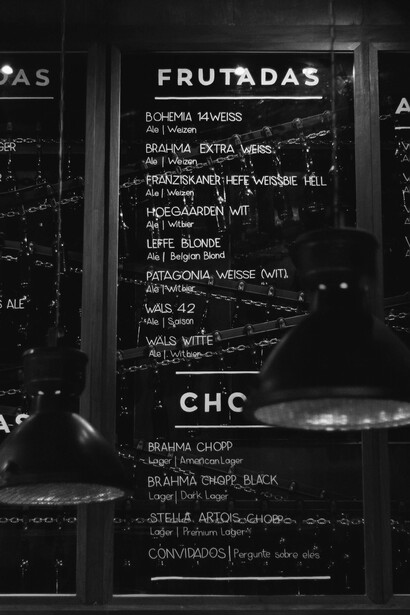 DAS
FRUTADAS
BOHEMIA 14WEISS
Ale | Weizen
BRAHMA EXTRA WEISS
Ale | Weizen
FRANZISKANER HEFE WEISSBIE HELL
Ale | Weizen
HOEGAARDEN WIT
Ale | Witbier
LEFFE BLONDE
Ale | Belgian Blond
PATAGONIA WEISSE (WIT)
Ale | Witbier
WALS 42
Ale | Saison
WALS WITTE
Ale | Witbier
CHO
BRAHMA CHOPP
Lager | American Lager
BRAHMA CHOPP BLACK
Lager | Dark Lager
STELLA ARTOIS CHOPP
Lager | Premium Lager
CONVIDADOS | Pergunte sobre eles